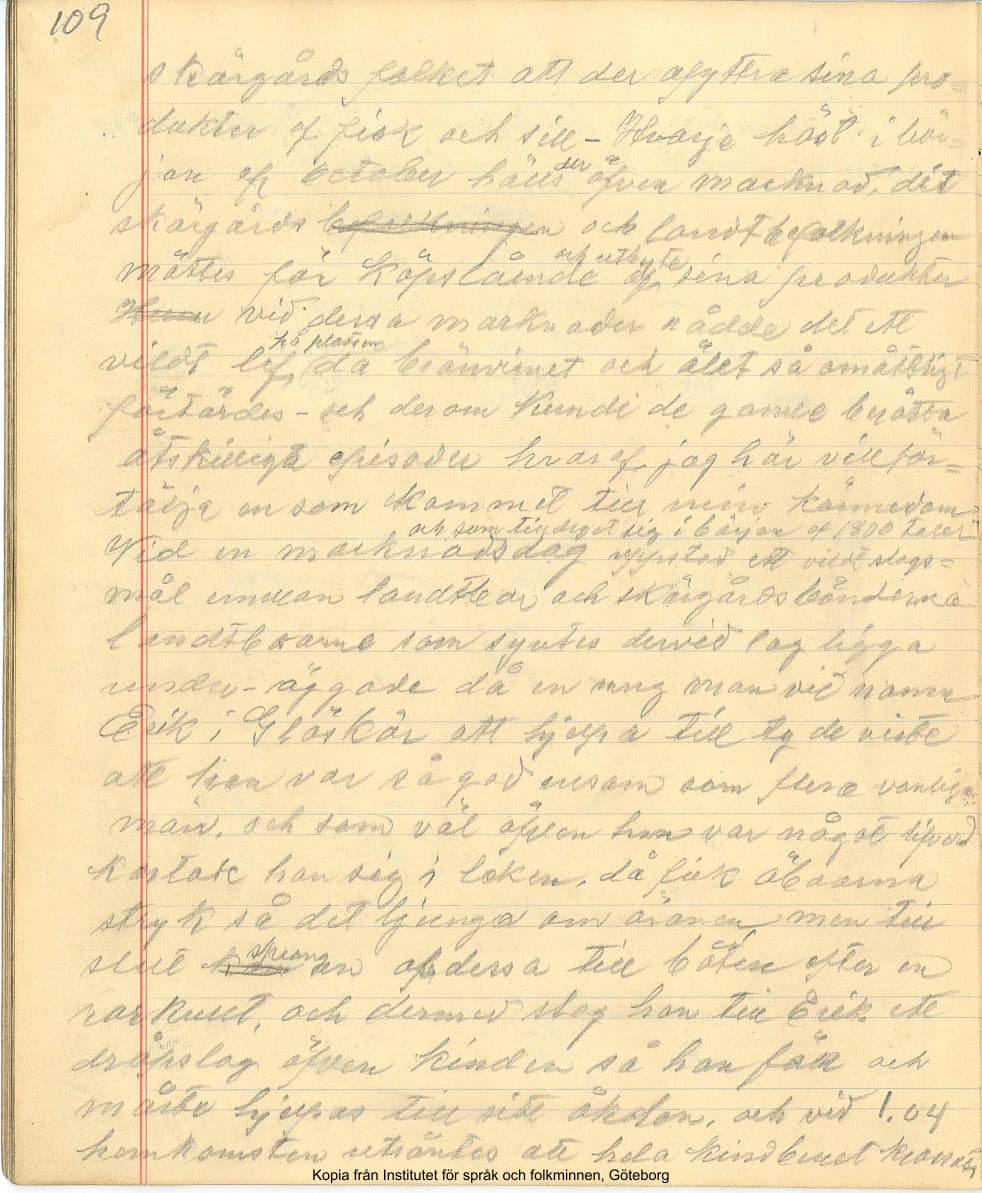 109
skärgårds folket att der afyttra sina pro=
dukter af fisk och sill - Hvarje höst i bör=
jan af october hålls der äfven marknad, dit
skärgårds befolkningen och landtbefolkningen
möttes för köpslående och utbyte af sina produkter
vid dessa marknader rådde det ett
vildt lif på platsen då bränvinet och ölet så omåttligt
förtärdes - och derom kunde de gamle berätta
åtskilliga episoder hvaraf jag här vill för=
tälja en som kommet till min kännedom
och som tilldraget sig i början af 1800 talet
Vid en marknadsdag uppstod ett vildt slags=
mål emellan landtboar och skärgårdsbönderna
landtboarne som syntes dervid lag ligga
under - äggade då en ung man vid namn
Erik i Glösbär att hjelpa till ty de viste
att han var så god ensam som flera vanliga
män, och som väl äfven han var något
kastade han sig i leken, då fick öboarna
stryk så det ljunga om öronen men till
slut sprang en af dessa till båten efter en
, och dermed slog han till Erik ett
dråpslag öfver kinden så han föll och
måste hjelpas till sitt åkdon, och vid 1.04
hemkomsten utröntes att hela kindbenet krossats
Kopia från Institutet för språk och folkminnen, Göteborg